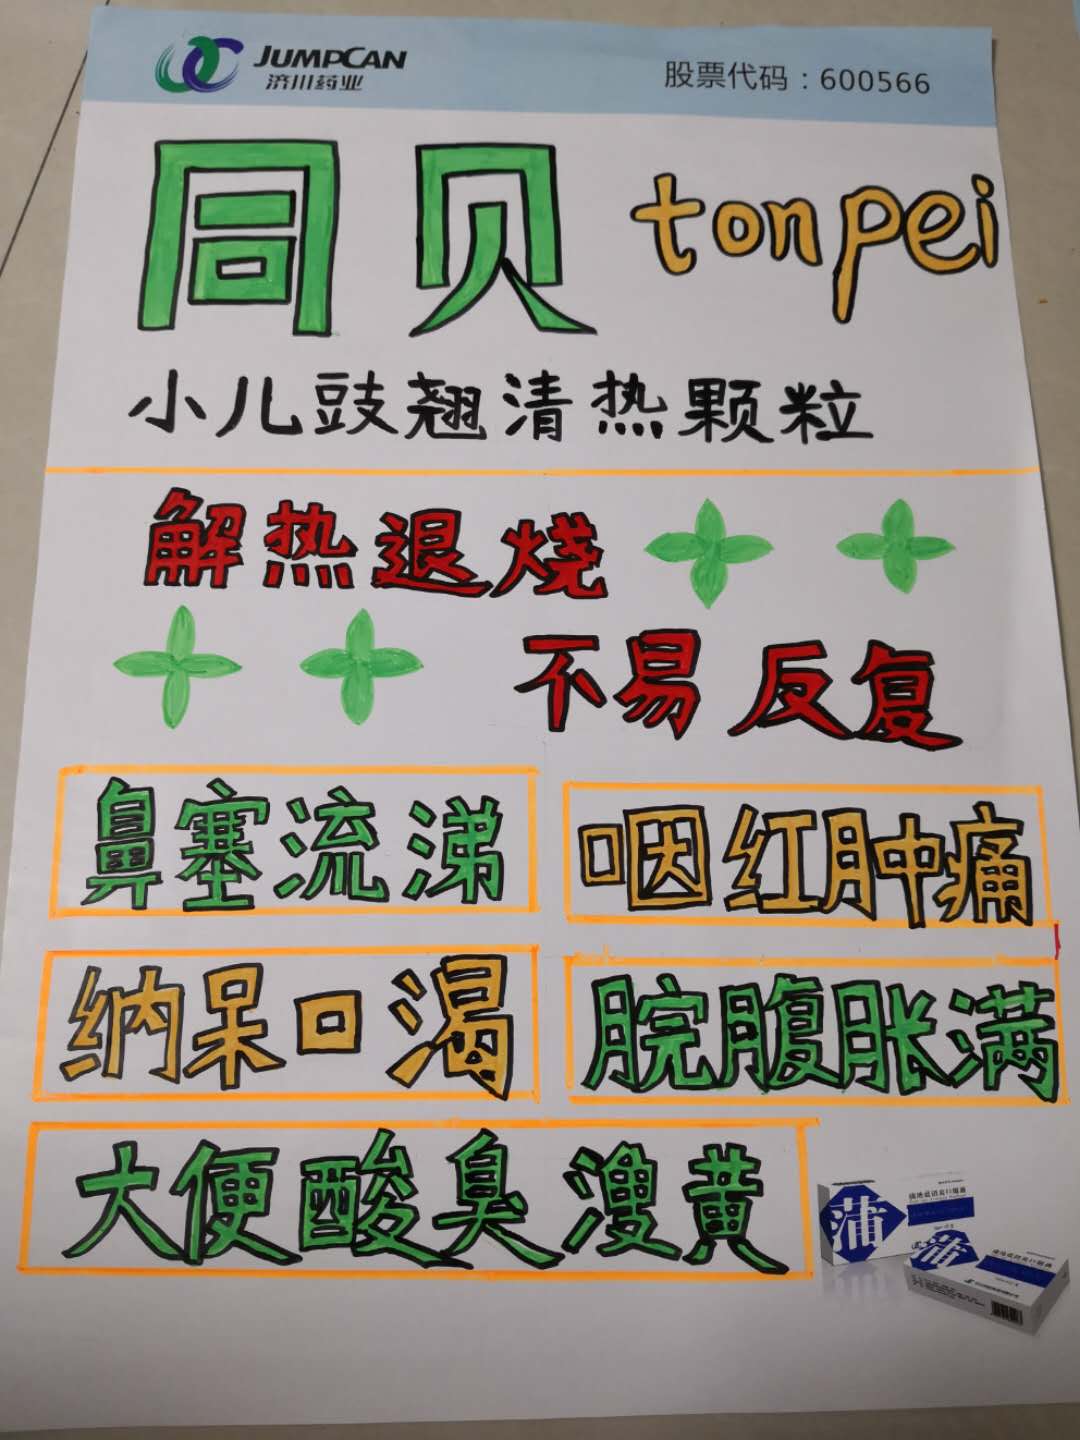 JUMPCAN
济川药业
股票代码：600566
同贝 tonpei
小儿豉翘清热颗粒
解热退烧
不易反复
鼻塞流涕
咽红肿痛
纳呆口渴
脘腹胀满
大便酸臭溲黄
蒲
蒲地蓝消炎口服液
蒲
蒲地蓝消炎口服液